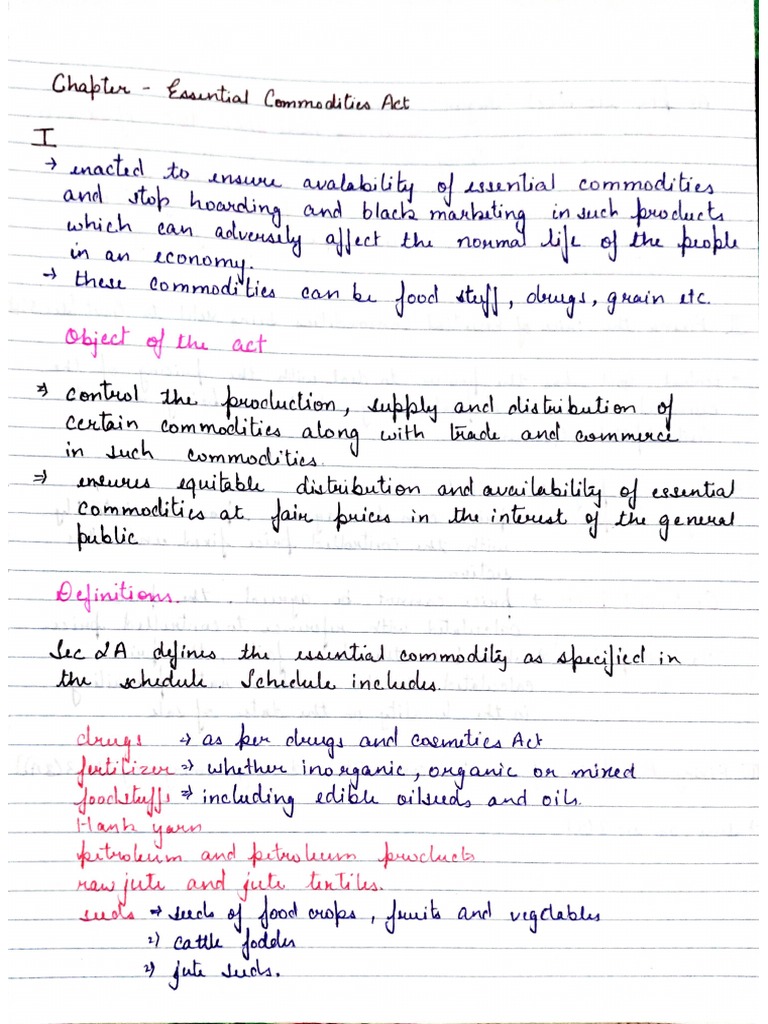 Chapter - Essential Commodities Act
I
→ enacted to ensure avalability of essential commodities
and stop hoarding and black marketing in such products
which can adversely affect the normal life of the people
in an economy.
→ these commodities can be food stuff, drugs, grain etc.
Object of the act
⇒ control the production, supply and distribution of
certain commodities along with trade and commerce
in such commodities.
⇒ ensures equitable distribution and availability of essential
commodities at fair prices in the interest of the general
public
Definitions.
Sec 2A defines the essential commodity as specified in
the schedule. Schedule includes.
drugs → as per drugs and cosmetics Act
fertilizer ⇒ whether inorganic, organic or mixed
foodstuffs ⇒ including edible oilseeds and oils.
Hank yarn
petroleum and petroleum products
raw jute and jute textiles.
seeds → seeds of food crops, fruits and vegetables
2) cattle fodder
2) jute seeds.